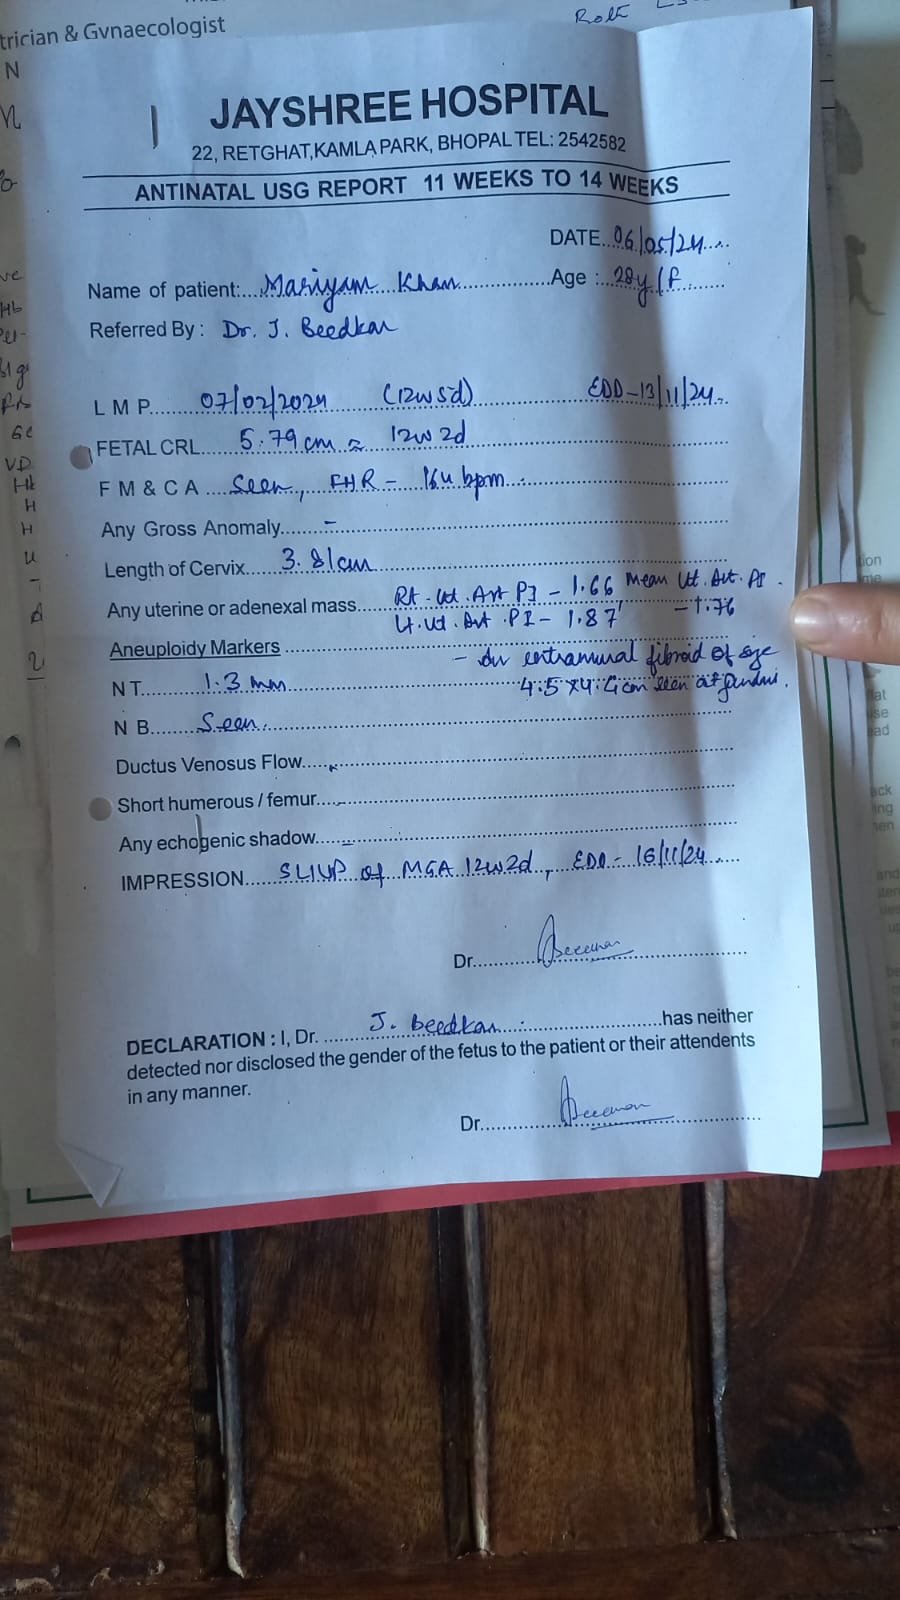 trician & Gynaecologist
JAYSHREE HOSPITAL
22, RETGHAT,KAMLA PARK, BHOPAL TEL: 2542582
ANTINATAL USG REPORT 11 WEEKS TO 14 WEEKS
DATE..06/05/24....
Name of patient:...Mariyam Khan...............Age :..28y/f......
Referred By : Dr. J. Beedkar
L M P..... 07/02/2024 (12w5d) EDD-13/11/24.
FETAL CRL..... 5.79 cm ≈ 12w 2d
F M & C A ....Seen, FHR - 164 bpm...
Any Gross Anomaly...... -
Length of Cervix.... 3.81cm
Any uterine or adenexal mass.... Rt. Ut. Art PI - 1.66 Mean Ut. Art. PI
Lt. Ut. Art. PI - 1.87 - 1.76
Aneuploidy Markers
- An intramural fibroid of size
4.5 x 4.4 cm seen at fundus.
N T........ 1.3 mm
N B........Seen.
Ductus Venosus Flow....
Short humerous / femur....
Any echogenic shadow....
IMPRESSION.....SLIUP of MGA 12w2d, EDD - 16/11/24....
Dr.
DECLARATION : I, Dr. ........J. Beedkar........has neither
detected nor disclosed the gender of the fetus to the patient or their attendents
in any manner.
Dr.